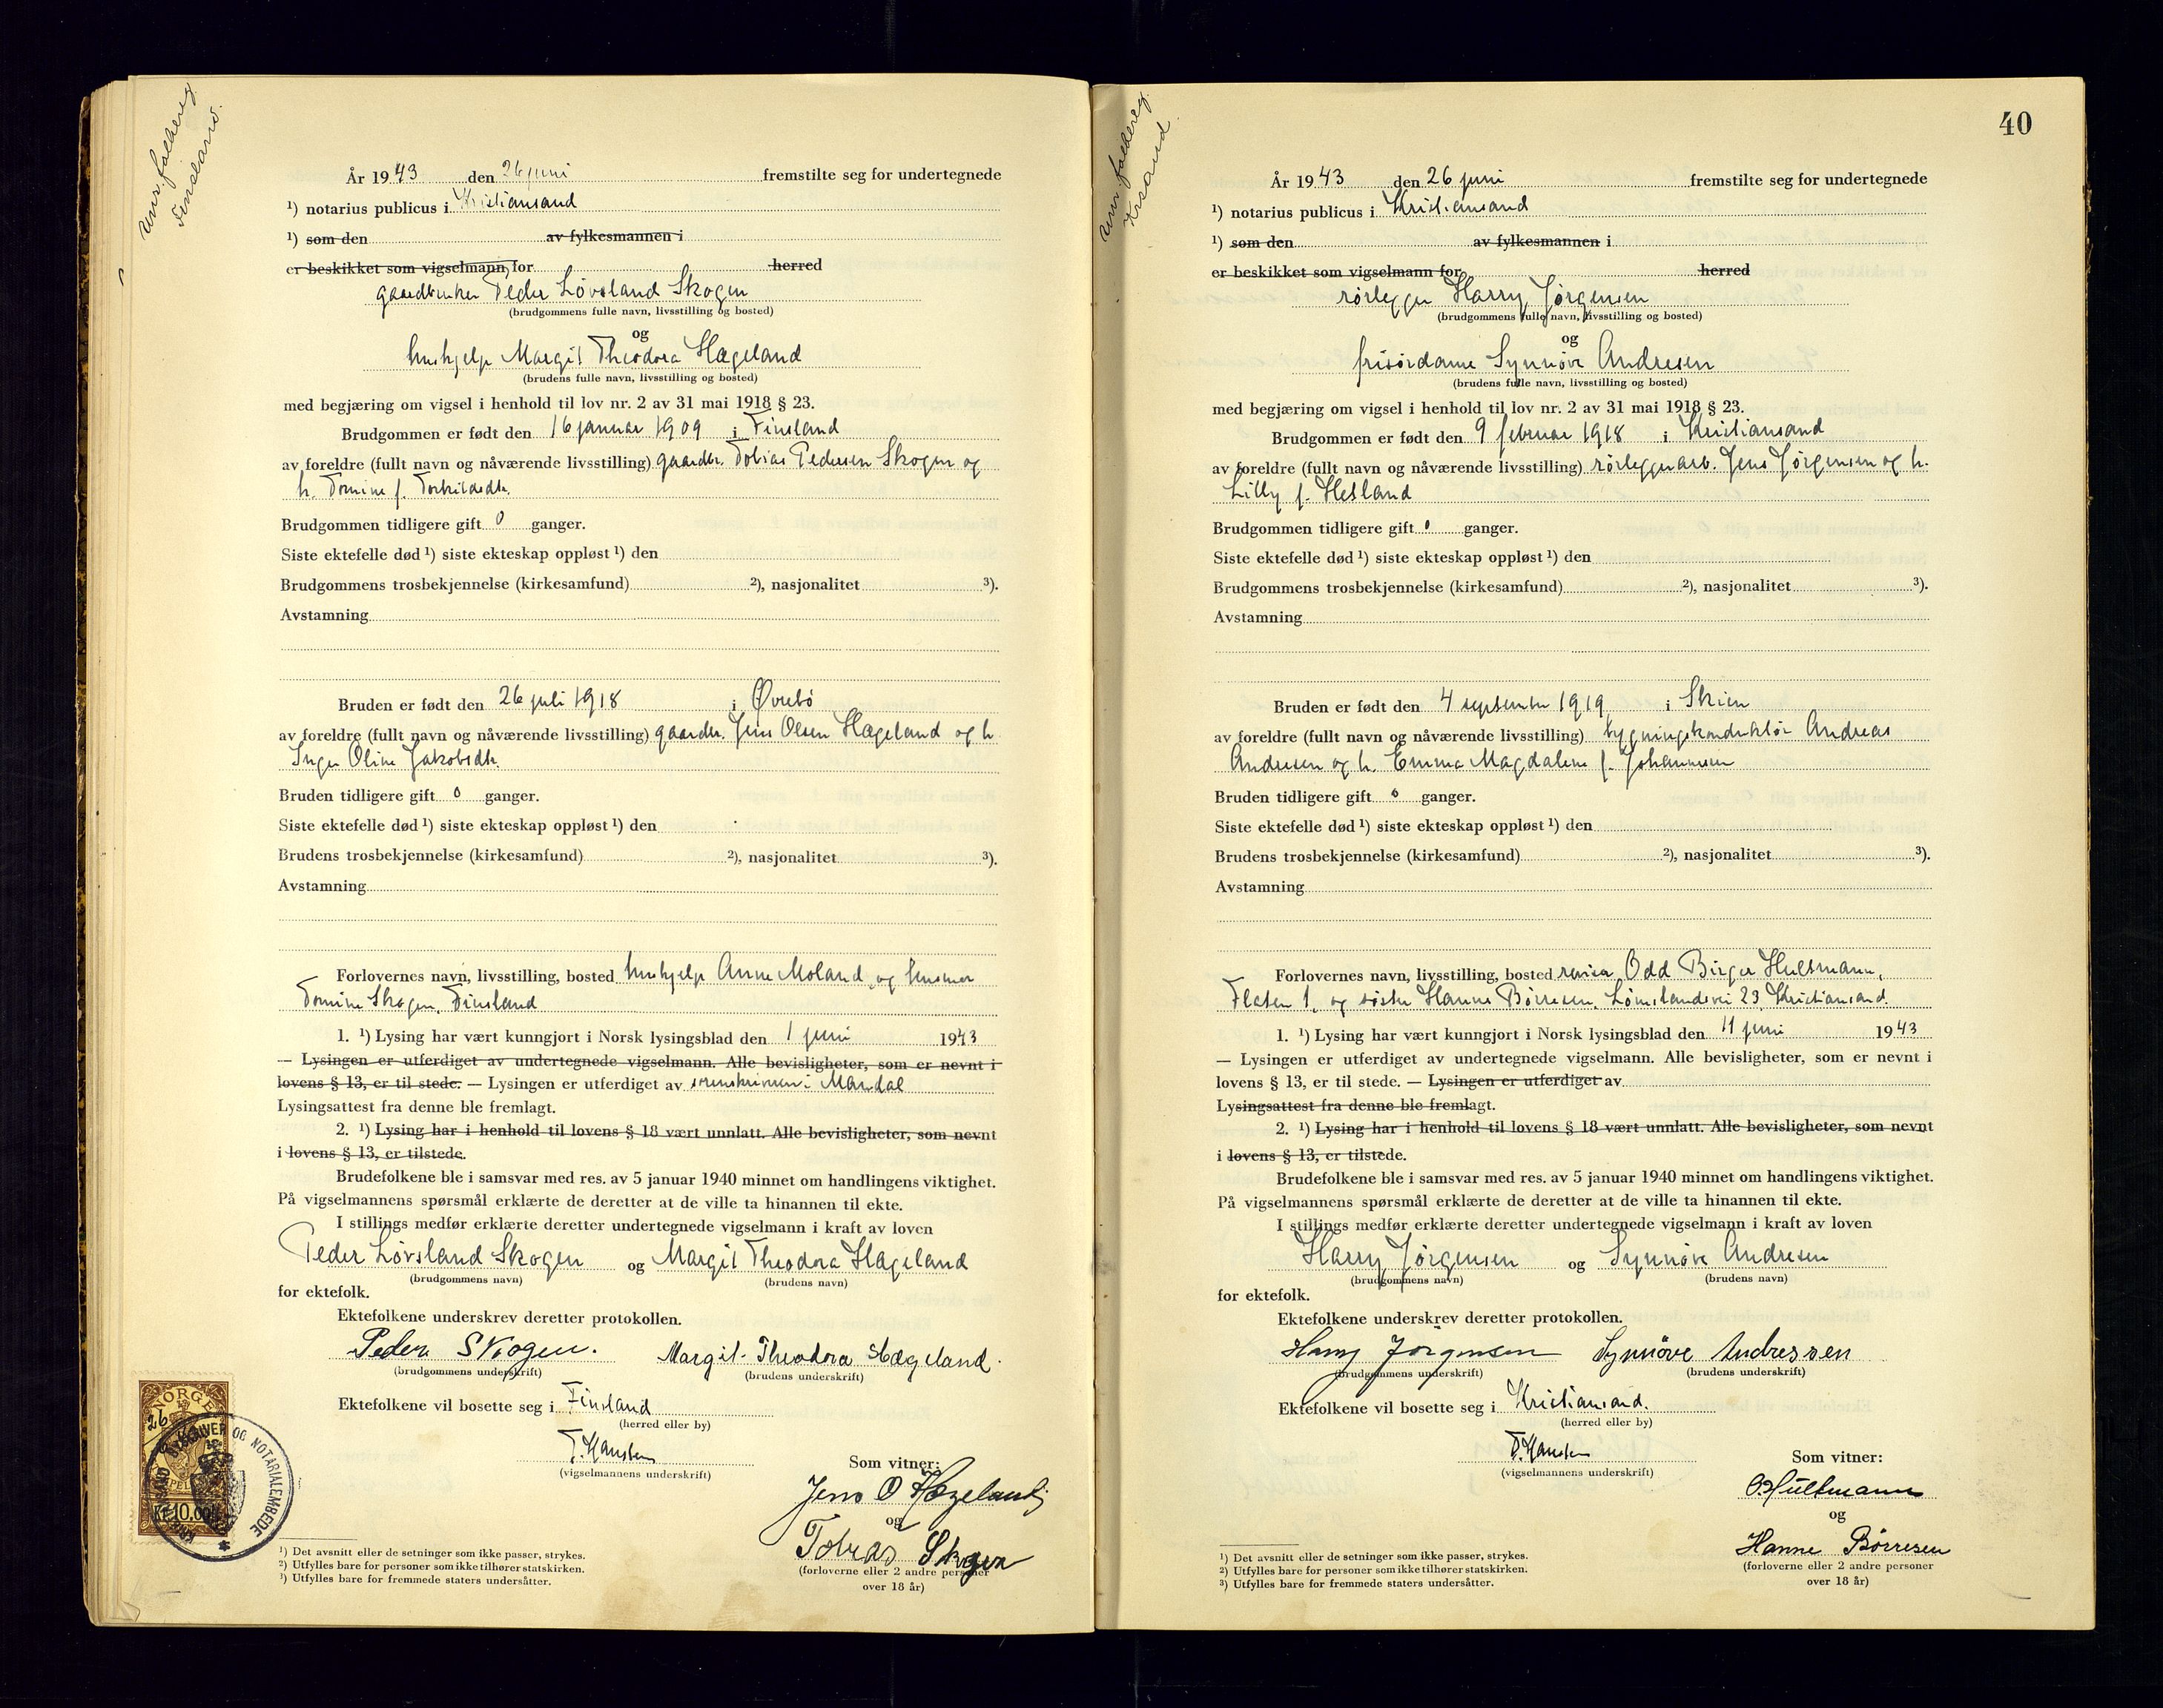 Unr. folkereg.
Finsland.
År 1943 den 26 juni fremstilte seg for undertegnede
¹) notarius publicus i Kristiansand
¹) som den av fylkesmannen i
er beskikket som vigselmann, for herred
gaardbruker Peder Løvsland Skogen
(brudgommens fulle navn, livsstilling og bosted)
og
hushjelp Margit Theodora Hægeland
(brudens fulle navn, livsstilling og bosted)
med begjæring om vigsel i henhold til lov nr. 2 av 31 mai 1918 § 23.
Brudgommen er født den 16 januar 1909 i Finsland
av foreldre (fullt navn og nåværende livsstilling) gaardbr. Tobias Pedersen Skogen og
h. Tomine f. Torkildsdtr.
Brudgommen tidligere gift 0 ganger.
Siste ektefelle død ¹) siste ekteskap oppløst ¹) den
Brudgommens trosbekjennelse (kirkesamfund) ²), nasjonalitet ³).
Avstamning
Bruden er født den 26 juli 1918 i Øvrebö
av foreldre (fullt navn og nåværende livsstilling) gaardbr. Jens Olsen Hægeland og h.
Inger Oline Jakobsdtr.
Bruden tidligere gift 0 ganger.
Siste ektefelle død ¹) siste ekteskap oppløst ¹) den
Brudens trosbekjennelse (kirkesamfund) ²), nasjonalitet ³).
Avstamning
Forlovernes navn, livsstilling, bosted hushjelp Anne Moland og husmor
Tomine Skogen, Finsland
1. ¹) Lysing har vært kunngjort i Norsk lysingsblad den 1 juni 1943
— Lysingen er utferdiget av undertegnede vigselmann. Alle bevisligheter, som er nevnt i
lovens § 13, er til stede. — Lysingen er utferdiget av sorenskriveren i Mandal
Lysingsattest fra denne ble fremlagt.
2. ¹) Lysing har i henhold til lovens § 18 vært unnlatt. Alle bevisligheter, som nevnt
i lovens § 13, er tilstede.
Brudefolkene ble i samsvar med res. av 5 januar 1940 minnet om handlingens viktighet.
På vigselmannens spørsmål erklærte de deretter at de ville ta hinannen til ekte.
I stillings medfør erklærte deretter undertegnede vigselmann i kraft av loven
Peder Løvsland Skogen og Margit Theodora Hægeland
(brudgommens navn) (brudens navn)
for ektefolk.
Ektefolkene underskrev deretter protokollen.
Peder Skogen. Margit Theodora Hægeland.
(brudgommens underskrift) (brudens underskrift)
Ektefolkene vil bosette seg i Finsland
(herred eller by)
T. Hansen
(vigselmannens underskrift)
Som vitner:
Jens O Hægeland
og
Tobias Skogen
(forloverne eller 2 andre personer
over 18 år)
NORGE
26
Kr 10.00
BYSKRIVER OG NOTARIALEMBEDE
¹) Det avsnitt eller de setninger som ikke passer, strykes.
²) Utfylles bare for personer som ikke tilhører statskirken.
³) Utfylles bare for fremmede staters undersåtter.
40
Unr. folkereg.
Krsand.
År 1943 den 26 juni fremstilte seg for undertegnede
¹) notarius publicus i Kristiansand
¹) som den av fylkesmannen i
er beskikket som vigselmann for herred
rørlegger Harry Jørgensen
(brudgommens fulle navn, livsstilling og bosted)
og
frisördame Synnöve Andresen
(brudens fulle navn, livsstilling og bosted)
med begjæring om vigsel i henhold til lov nr. 2 av 31 mai 1918 § 23.
Brudgommen er født den 9 februar 1918 i Kristiansand
av foreldre (fullt navn og nåværende livsstilling) rørleggerarb. Jens Jørgensen og h.
Lilly f. Helland
Brudgommen tidligere gift 0 ganger.
Siste ektefelle død ¹) siste ekteskap oppløst ¹) den
Brudgommens trosbekjennelse (kirkesamfund) ²), nasjonalitet ³).
Avstamning
Bruden er født den 4 september 1919 i Skien
av foreldre (fullt navn og nåværende livsstilling) bygningskonduktör Andreas
Andresen og h. Emma Magdalene f. Johannesen
Bruden tidligere gift 0 ganger.
Siste ektefelle død ¹) siste ekteskap oppløst ¹) den
Brudens trosbekjennelse (kirkesamfund) ²), nasjonalitet ³).
Avstamning
Forlovernes navn, livsstilling, bosted revisor Odd Birger Hultmann,
Flaten 1, og søster Hanne Börresen, Lömslandsvei 23 Kristiansand.
1. ¹) Lysing har vært kunngjort i Norsk lysingsblad den 11 juni 1943
— Lysingen er utferdiget av undertegnede vigselmann. Alle bevisligheter, som er nevnt i
lovens § 13, er til stede. — Lysingen er utferdiget av
Lysingsattest fra denne ble fremlagt.
2. ¹) Lysing har i henhold til lovens § 18 vært unnlatt. Alle bevisligheter, som nevnt
i lovens § 13, er tilstede.
Brudefolkene ble i samsvar med res. av 5 januar 1940 minnet om handlingens viktighet.
På vigselmannens spørsmål erklærte de deretter at de ville ta hinannen til ekte.
I stillings medfør erklærte deretter undertegnede vigselmann i kraft av loven
Harry Jørgensen og Synnöve Andresen
(brudgommens navn) (brudens navn)
for ektefolk.
Ektefolkene underskrev deretter protokollen.
Harry Jörgensen Synnöve Andressen
(brudgommens underskrift) (brudens underskrift)
Ektefolkene vil bosette seg i Kristiansand.
(herred eller by)
T. Hansen
(vigselmannens underskrift)
Som vitner:
O. Hultmann
og
Hanne Börresen
(forloverne eller 2 andre personer
over 18 år)
¹) Det avsnitt eller de setninger som ikke passer, strykes.
²) Utfylles bare for personer som ikke tilhører statskirken.
³) Utfylles bare for fremmede staters undersåtter.